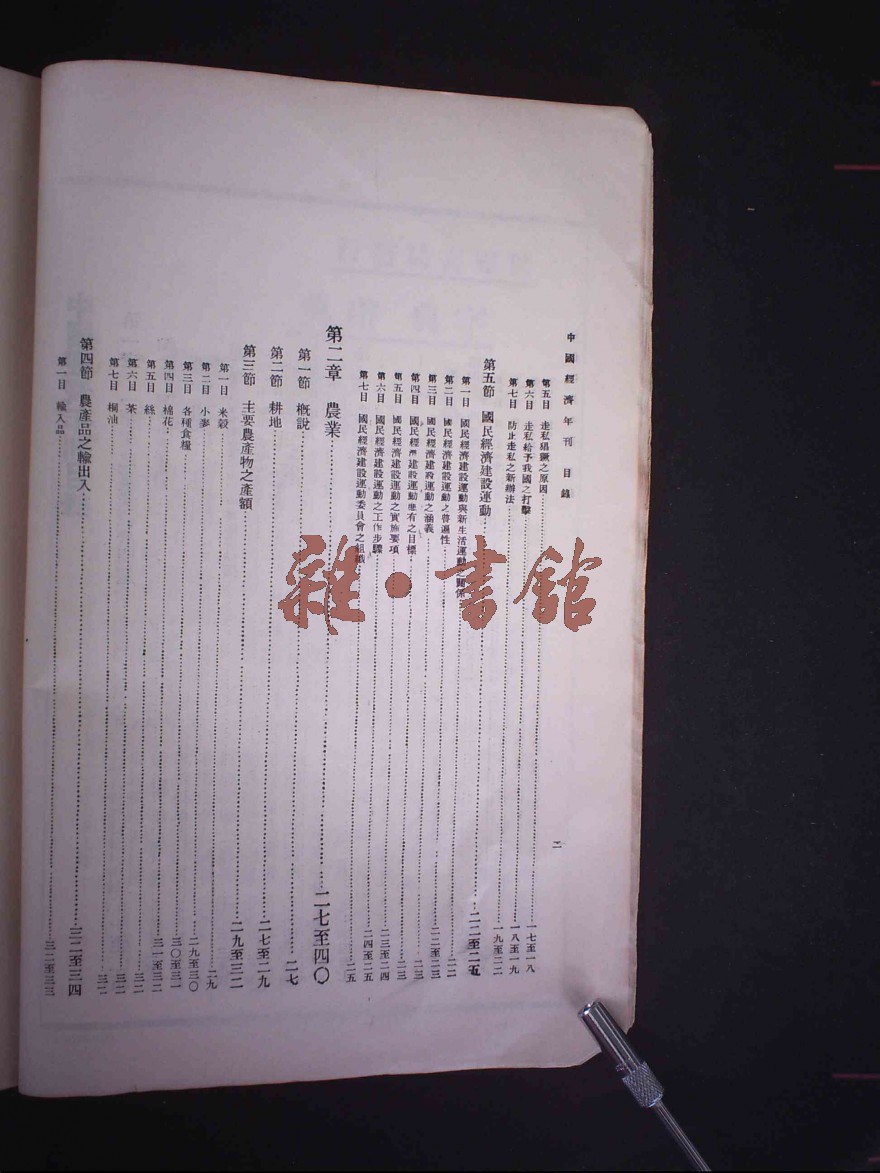 中國經濟年刊 目錄
第五目 走私猖獗之原因……一七至一八
第六目 走私給予我國之打擊……一八至一九
第七目 防止走私之新辦法……一九至二二
第五節 國民經濟建設運動……二二至二五
第一目 國民經濟建設運動與新生活運動 關係……二二
第二目 國民經濟建設運動之普遍性……二二
第三目 國民經濟建設運動之涵義……二二至二三
第四目 國民經濟建設運動應有之目標……二三
第五目 國民經濟建設運動之實施要項……二三
第六目 國民經濟建設運動之工作步驟……二三至二四
第七目 國民經濟建設運動委員會之組織……二四至二五
第二章 農業……二七至四〇
第一節 概說……二七
第二節 耕地……二七至二九
第三節 主要農產物之產額……二九至三二
第一目 米穀……二九
第二目 小麥……二九至三〇
第三目 各種食糧……三〇至三一
第四目 棉花……三一至三二
第五目 絲……三二
第六目 茶……三二
第七目 桐油……三二
第四節 農產品之輸出入……三二至三四
第一目 輸入品……三二至三三
二
雜·書館